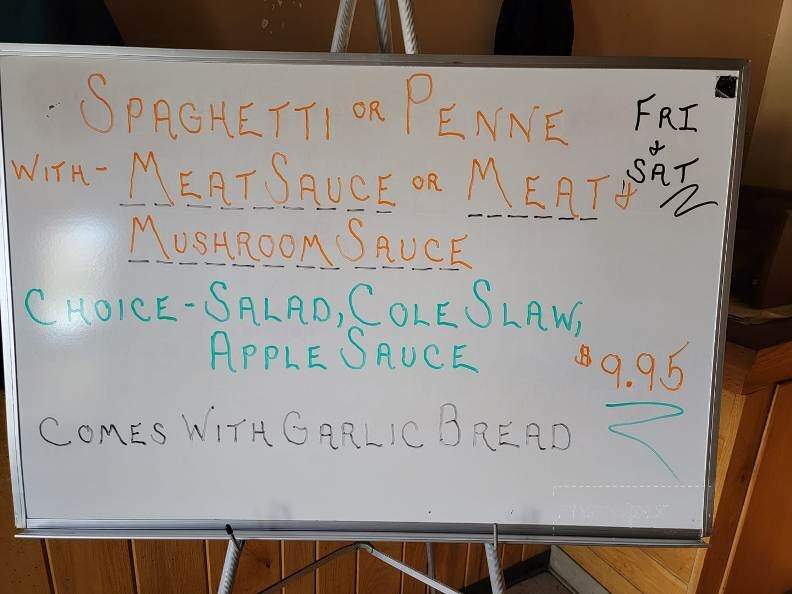 SPAGHETTI OR PENNE
FRI
& SAT
WITH - MEAT SAUCE OR MEAT &
MUSHROOM SAUCE
CHOICE - SALAD, COLE SLAW,
APPLE SAUCE
$9.95
COMES WITH GARLIC BREAD